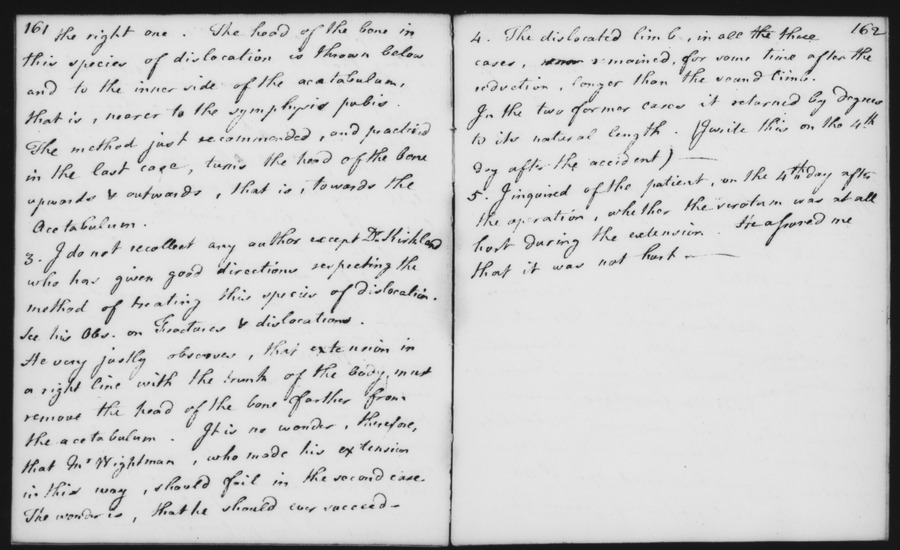 161
the right one. The head of the bone in
this species of dislocation is thrown below
and to the inner side of the acetabulum,
that is, nearer to the symphysis pubis.
The method just recommended, and practised
in the last case, turns the head of the bone
upwards & outwards, that is, towards the
Acetabulum.
3. I do not recollect any author except Dr. Kirkland
who has given good directions respecting the
method of treating this species of dislocation.
See his Obs. on Fractures & dislocations.
He very justly observes, that extension in
a right line with the trunk of the body, must
remove the head of the bone farther from
the acetabulum. It is no wonder, therefore,
that Mr Wightman, who made his extension
in this way, should fail in the second case.
The wonder is, that he should ever succeed—
162
4. The dislocated limb, in all the three
cases, remained, for some time after the
reduction, longer than the sound limb.
In the two former cases it returned by degrees
to its natural length. (I write this on the 4th
day after the accident) —
5. I inquired of the patient, on the 4th day after
the operation, whether the scrotum was at all
hurt during the extension. He assured me
that it was not hurt —